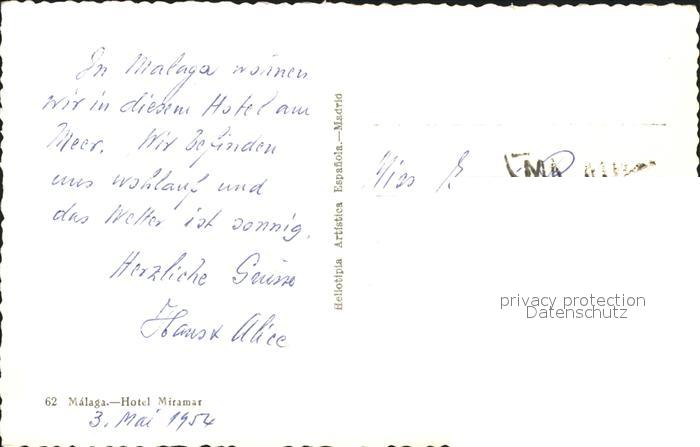 In Malaga wohnen
wir in diesem Hotel am
Meer. Wir befinden
uns wohlauf und
das Wetter ist sonnig.
Herzliche Grüsse
Hans & Alice
62 Málaga.—Hotel Miramar
3. Mai 1954
Heliotipia Artística Española.—Madrid
Miss E
privacy protection
Datenschutz